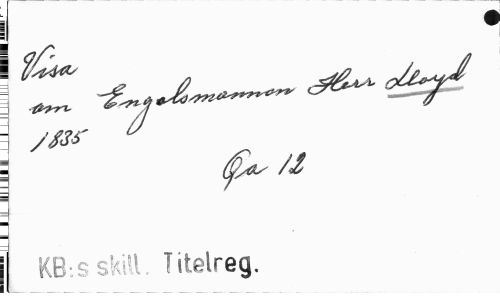 Visa
om Engelsmannen Herr Lloyd
1835
Qa 12
KB:s skill. Titelreg.